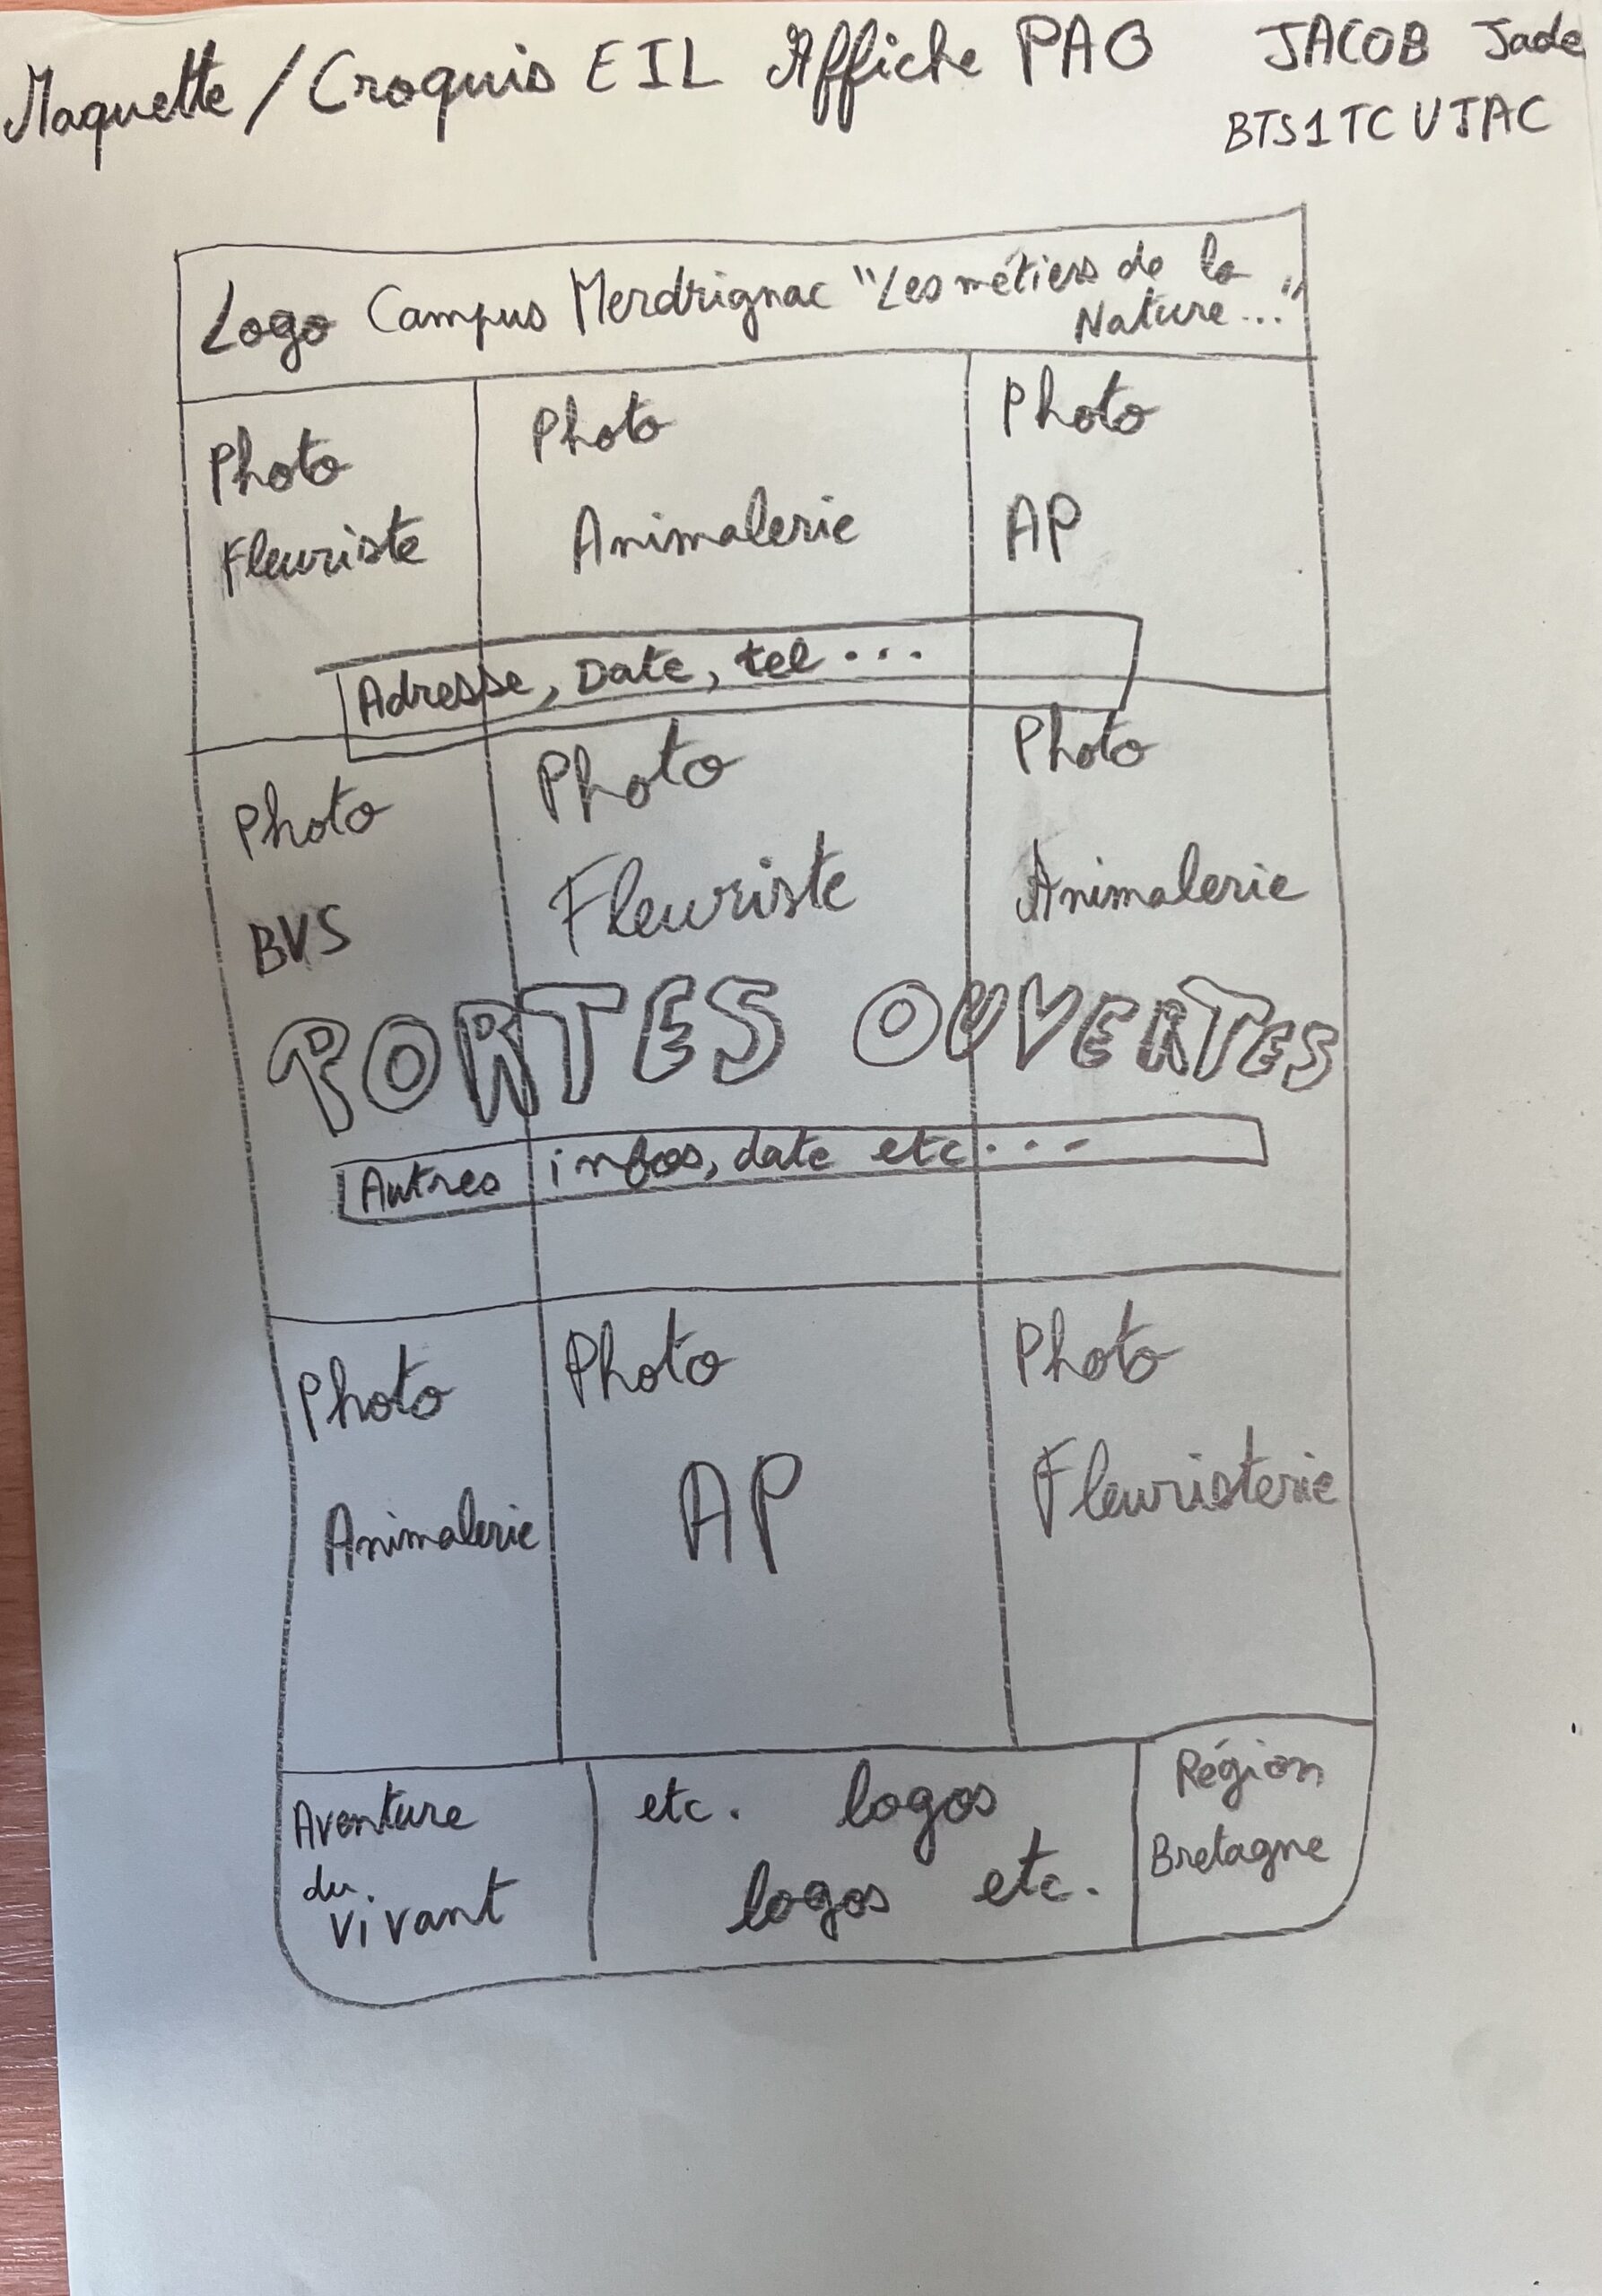 Maquette / Croquis EIL Affiche PAO JACOB Jade
BTS1TCVJAC
Logo Campus Merdrignac "Les métiers de la
Nature..."
Photo Photo Photo
Fleuriste Animalerie AP
Adresse, Date, tel...
Photo Photo Photo
BVS Fleuriste Animalerie
PORTES OUVERTES
Autres infos, date etc...
Photo Photo Photo
Animalerie AP Fleuristerie
Aventure etc. logos Région
du vivant logos etc. Bretagne